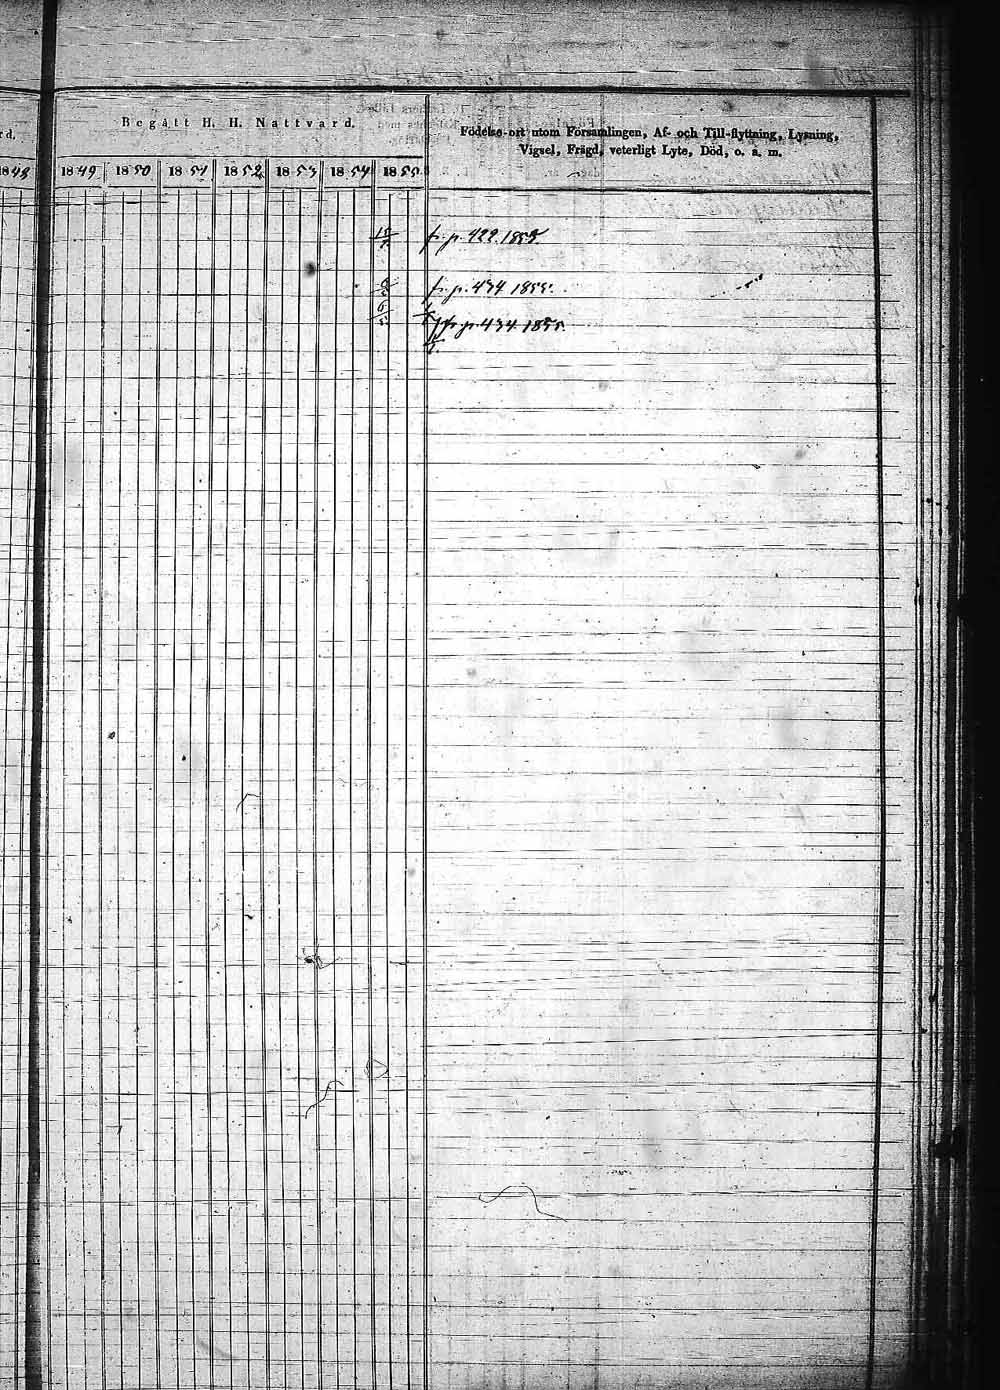 Begått H. H. Nattvard.
Födelse-ort utom Församlingen, Af- och Till-flyttning, Lysning,
Vigsel, Frägd, veterligt Lyte, Död, o. a. m.
1848 1849 1850 1851 1852 1853 1854 1855
fr. p. 422. 1855.
fr. p. 434 1855.
fr. p. 434. 1855.